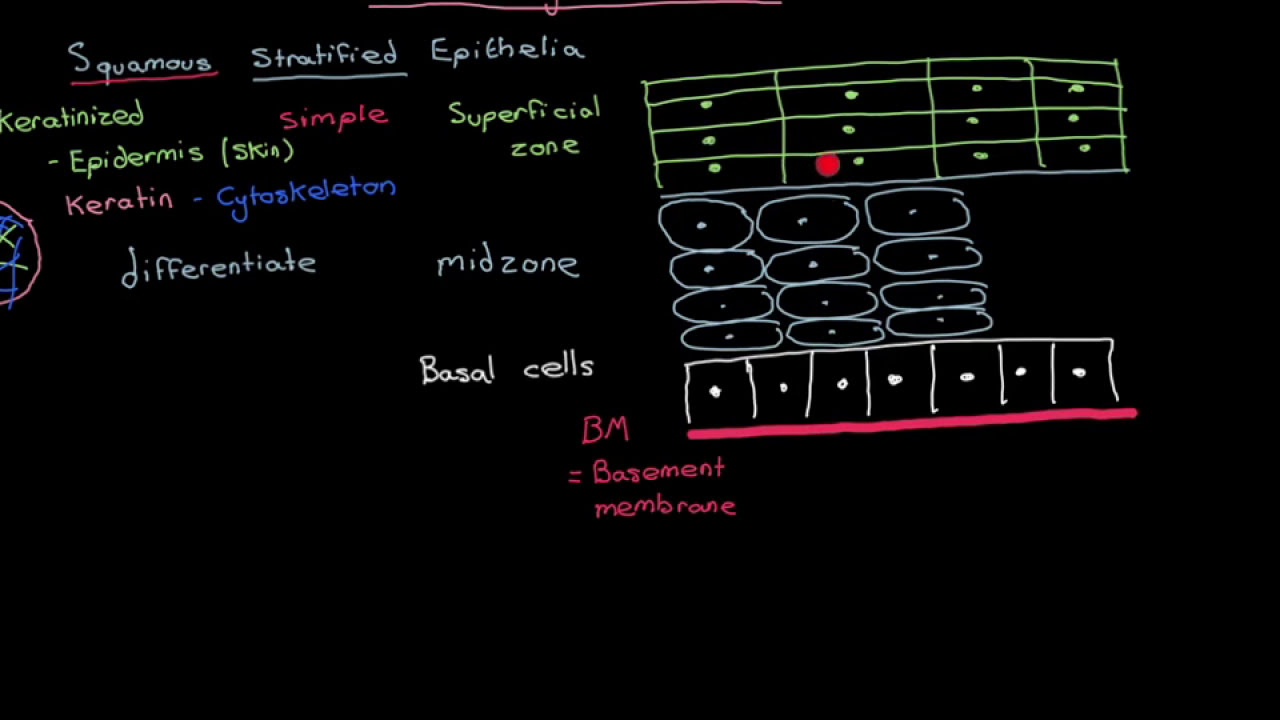 Squamous Stratified Epithelia
Keratinized simple Superficial
- Epidermis (skin) zone
Keratin - Cytoskeleton
differentiate midzone
Basal cells
BM
= Basement
membrane